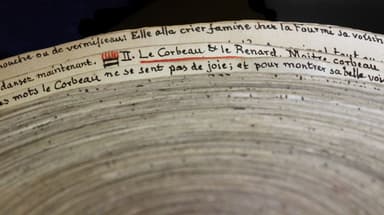 mouche ou de vermisseau. Elle alla crier famine chez la Fourmi sa voisin
dansez maintenant. II. Le Corbeau & le Renard. Maître corbeau
mots le Corbeau ne se sent pas de joie; et pour montrer sa belle vo